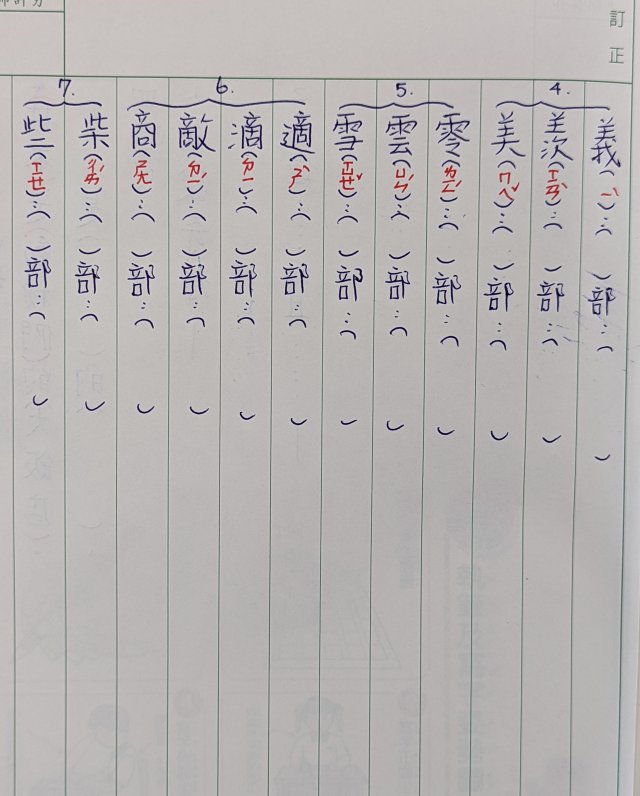 訂正
4.
義(ㄧˋ):( )部:( )
羨(ㄒㄧㄢˋ):( )部:( )
美(ㄇㄟˇ):( )部:( )
5.
零(ㄌㄧㄥˊ):( )部:( )
雲(ㄩㄣˊ):( )部:( )
雪(ㄒㄩㄝˇ):( )部:( )
6.
適(ㄕˋ):( )部:( )
滴(ㄉㄧ):( )部:( )
敵(ㄉㄧˊ):( )部:( )
商(ㄕㄤ):( )部:( )
7.
柴(ㄔㄞˊ):( )部:( )
些(ㄒㄧㄝ):( )部:( )